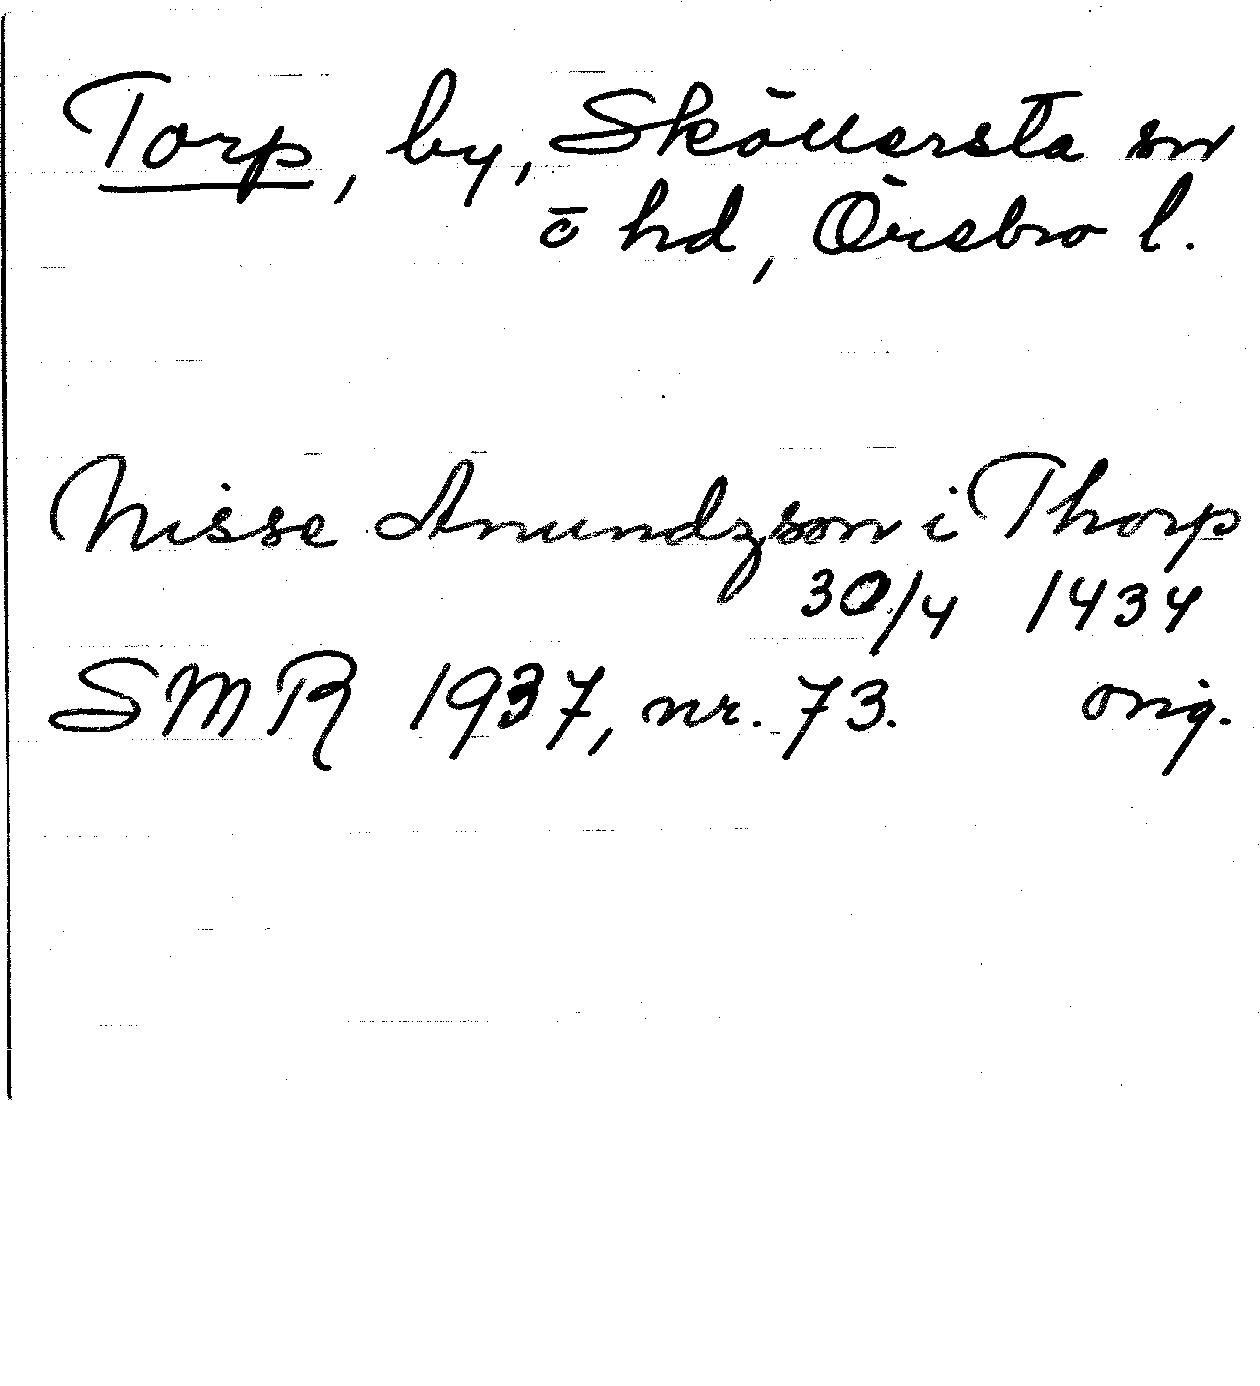 Torp, by, Sköllersta sn
ö hd, Örebro l.
Nisse Anundzson i Thorp
30/4 1434
SMR 1937, nr. 73. orig.